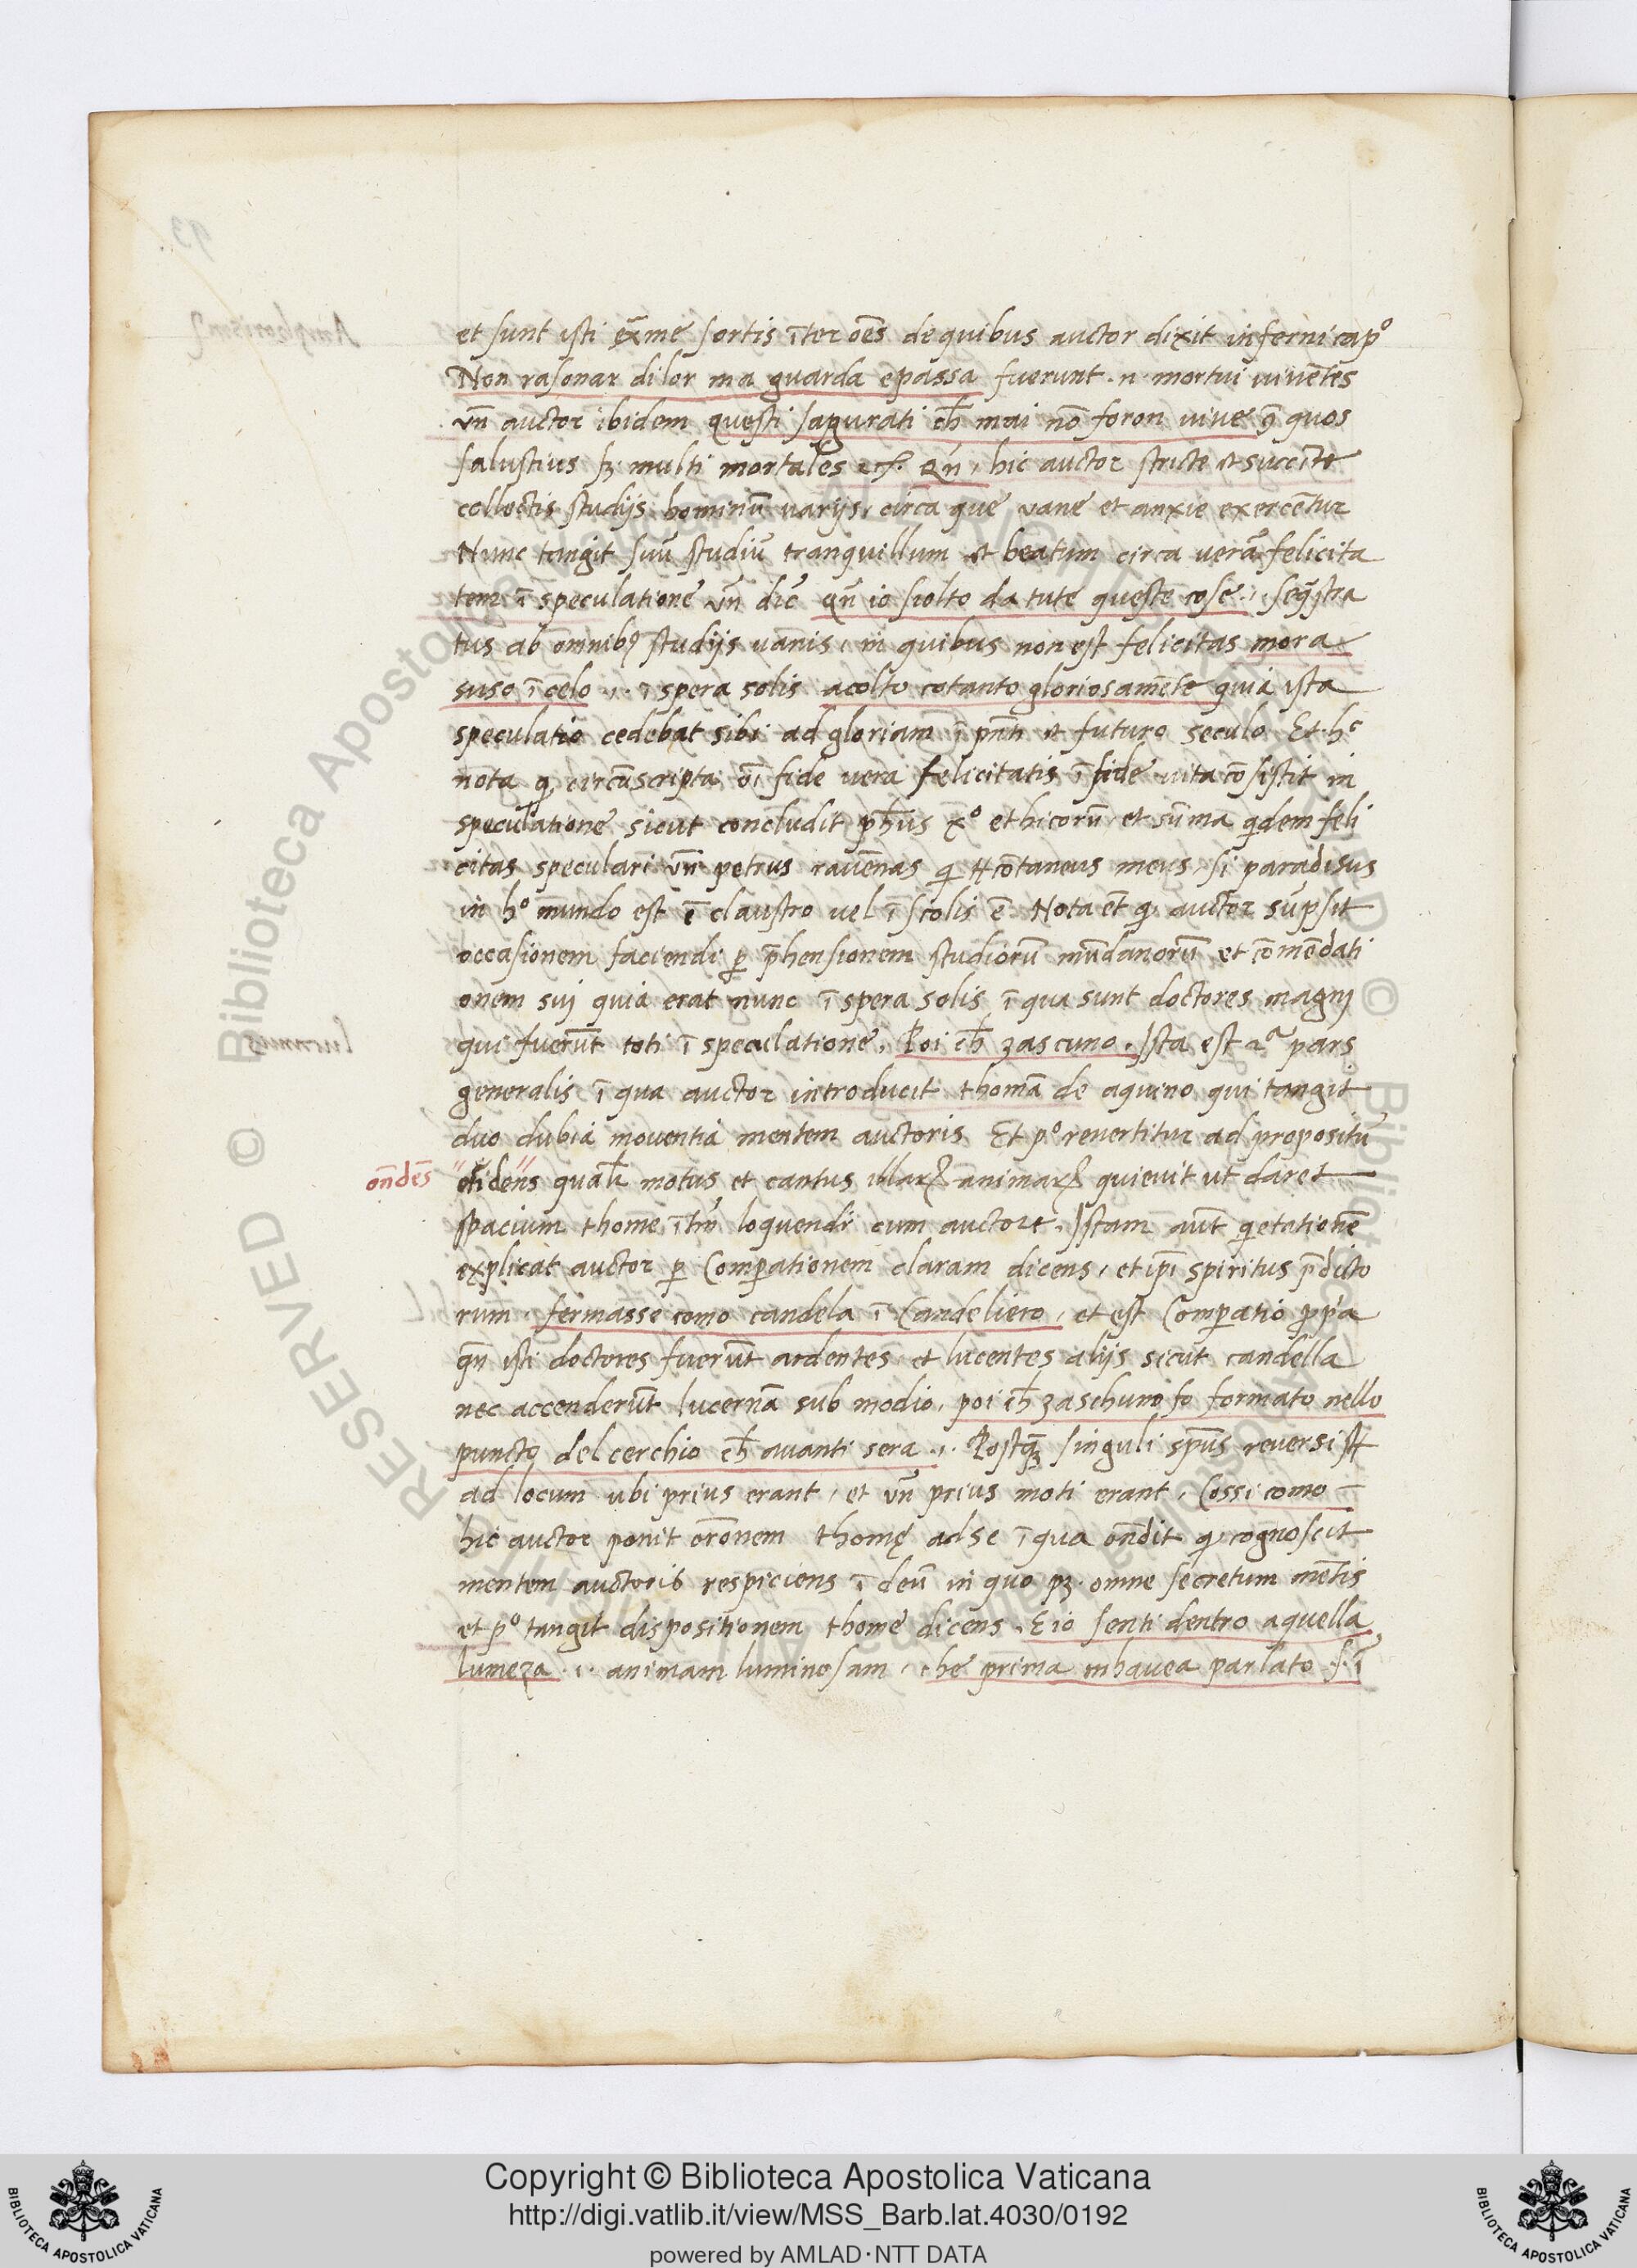 et sunt isti ex̄me sortis īter oēs de quibus auctor dixit inferni capº
Non rasonar di lor ma guarda e passa fuerunt .n. mortui viuētes
vn̄ auctor ibidem questi sagurati ch̄ mai nō foron viue 9͂ quos
salustius sꝫ multi mortales Qn̄, hic auctor stricte et succīte
collectis studijs hominū varijs, circa que vane et anxie exercētur
Nunc tangit suū studiū tranquillum et beatum circa verā felicita
tem ī speculatione vn̄ dic̄ qn̄ io siolto da tute queste cose .i. seq̄stra
tus ab omnibꝰ studijs vanis, in quibus non est felicitas mora
suso ī celo .i. ī spera solis acolto cotanto gloriosamēte quia ista
speculatio cedebat sibi ad gloriam ī pn̄ti et futuro seculo Et hᶜ
nota ꝙ circūscripta oī fide vera felicitatis ī fide vita cōsistit in
speculatione sicut concludit ph̄us xº ethicorū et sūma qͥdem feli
citas speculari vn̄ petrus ravēnas qͥ cōtaneus meus, si paradisus
in hº mundo est ē claustro vel ī scolis ē Nota et̄ ꝙ auctor sūpsit
occasionem faciendi ꝑ p̄hensionem studiorū mūdanorū et cōmēdati
onem sui quia erat nunc ī spera solis ī qua sunt doctores magnj
qui fuerūt toti ī speculatione. Poi ch̄ zascuno. Ista est 2ᵃ pars
generalis ī qua auctor introducit thomā de aquino qui tangit
duo dubia moventia mentem auctoris Et pº revertitur ad propositū
on̄dēs
qual̄r motus et cantus illaꝝ animaꝝ quievit ut daret
spacium thome loquendi cum auctore. Istam aūt qͥetationē
explicat auctor ꝑ Comꝑationem claram dicens, et ip̄i spiritus p̄dicto
rum, fermasse como candela ī Candeliero, et est Comꝑatio ꝓp̄a
qn̄ isti doctores fuerūt ardentes, et lucentes alijs sicut candella
nec accenderūt lucernā sub modio, poi ch̄ zaschuno fo formato nello
puncto del cerchio ch̄ avanti sera .i. Postq̄ꝫ singuli spūs reversi st̄
ad locum ubi prius erant, et vn̄ prius moti erant, Cossi como
hic auctor ponit orōnem thomę ad se ī qua on̄dit ꝙ cognoscit
mentem auctoris respiciens ī deū in quo pꝫ omne secretum mētis
et pº tangit dispositionem thome dicens, E io senti dentro a quella
lumeza .i. animam luminosam, che prima mhavea parlato .s. ī
Copyright © Biblioteca Apostolica Vaticana
http://digi.vatlib.it/view/MSS_Barb.lat.4030/0192
powered by AMLAD·NTT DATA